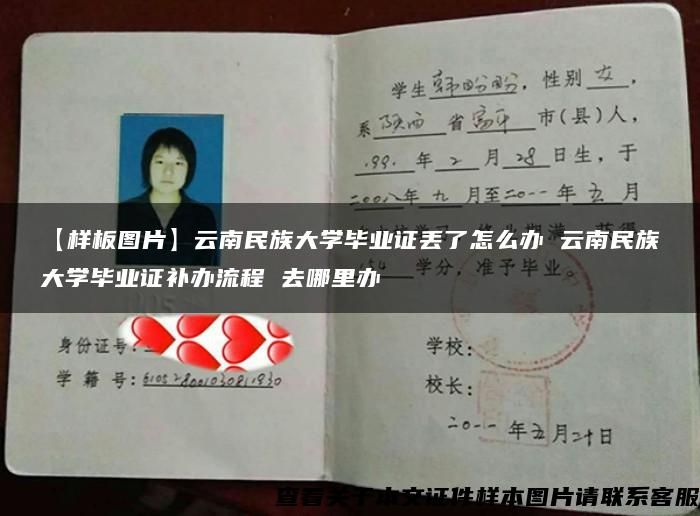 学生韩盼盼，性别女，
系陕西省富平市(县)人，
199.年2月28日生，于
二00八年九月至二0一一年五月
【样板图片】云南民族大学毕业证丢了怎么办 云南民族
大学毕业证补办流程 去哪里办
154 学分，准予毕业。
身份证号：
学籍号：610528001030811930
学校：
校长：
二0一一年五月二十日
查看关于本文证件样本图片请联系客服